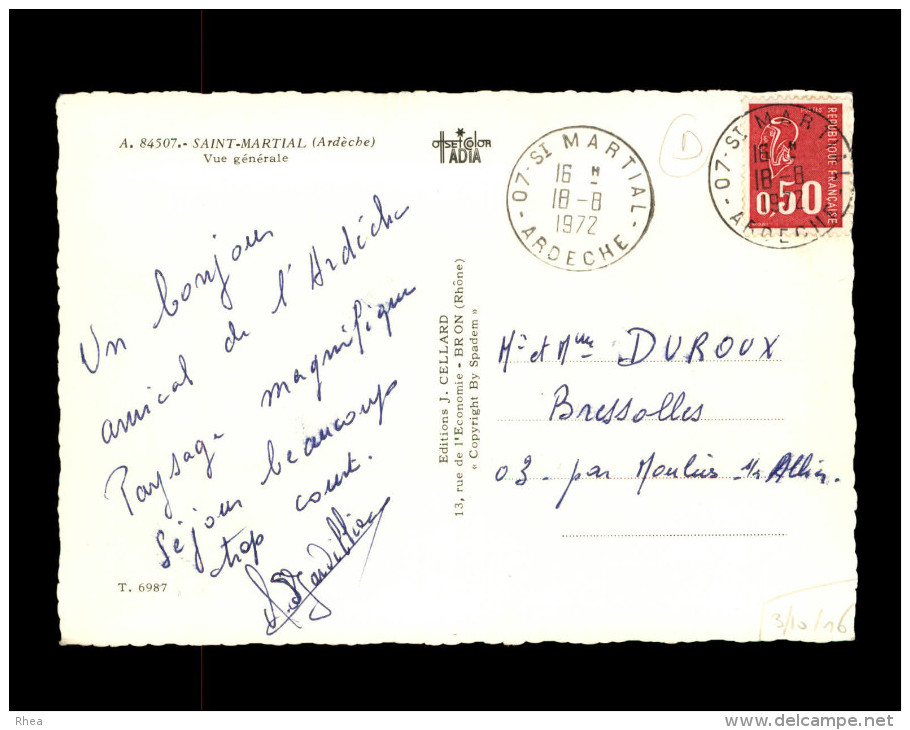 A. 84507.- SAINT-MARTIAL (Ardèche)
Vue générale
OFFSETCOLOR
ADIA
Un bonjour
amical de l'Ardèche
Paysage magnifique
Séjour beaucoup
trop court.
T. 6987
Editions J. CELLARD
13, rue de l'Economie - BRON (Rhône)
« Copyright By Spadem »
07-ST MARTIAL
16 H
18-8
1972
ARDECHE
07-ST MARTIAL
16 H
18-8
1972
ARDECHE
REPUBLIQUE FRANÇAISE
0,50
D
Mr et Mme DUROUX
Bressolles
03 - par Moulins s/r Allier.
3/10/16
Rhea
www.delcampe.net